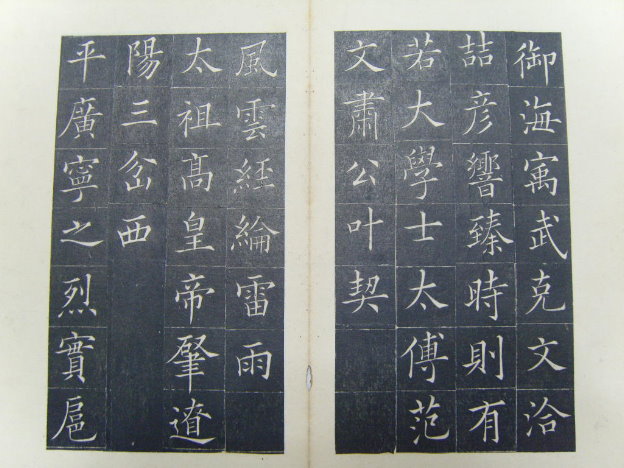 御海寓武克文洽
喆彦響臻時則有
若大學士太傅范
文肅公叶契
風雲経綸雷雨
太祖髙皇帝肈遼
陽三岔西
平廣寧之烈實扈